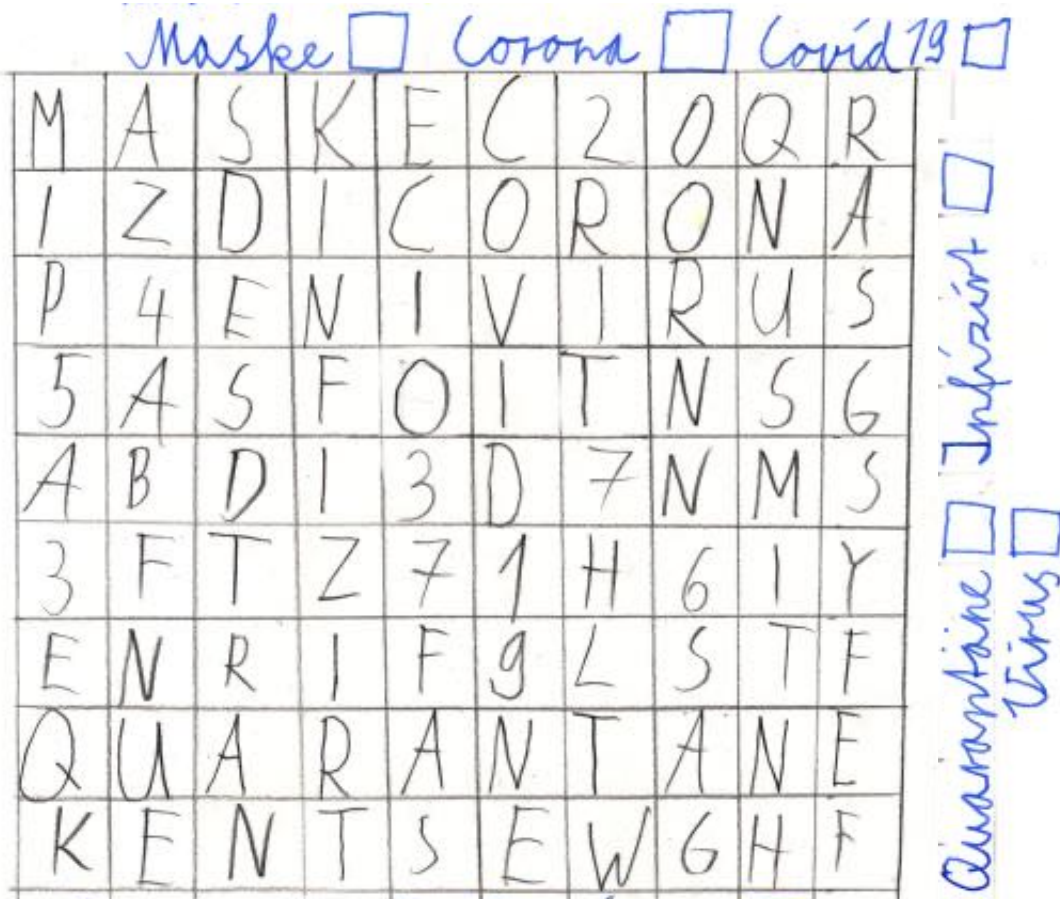 Maske Corona Covid 19
M A S K E C 2 0 Q R
I Z D I C O R O N A
P 4 E N I V I R U S
5 A S F O I T N S G
A B D I 3 D 7 N M S
3 F T Z 7 1 H 6 I Y
E N R I F 9 L S T F
Q U A R A N T A N E
K E N T S E W G H F
Quarantäne Infiziert
Virus